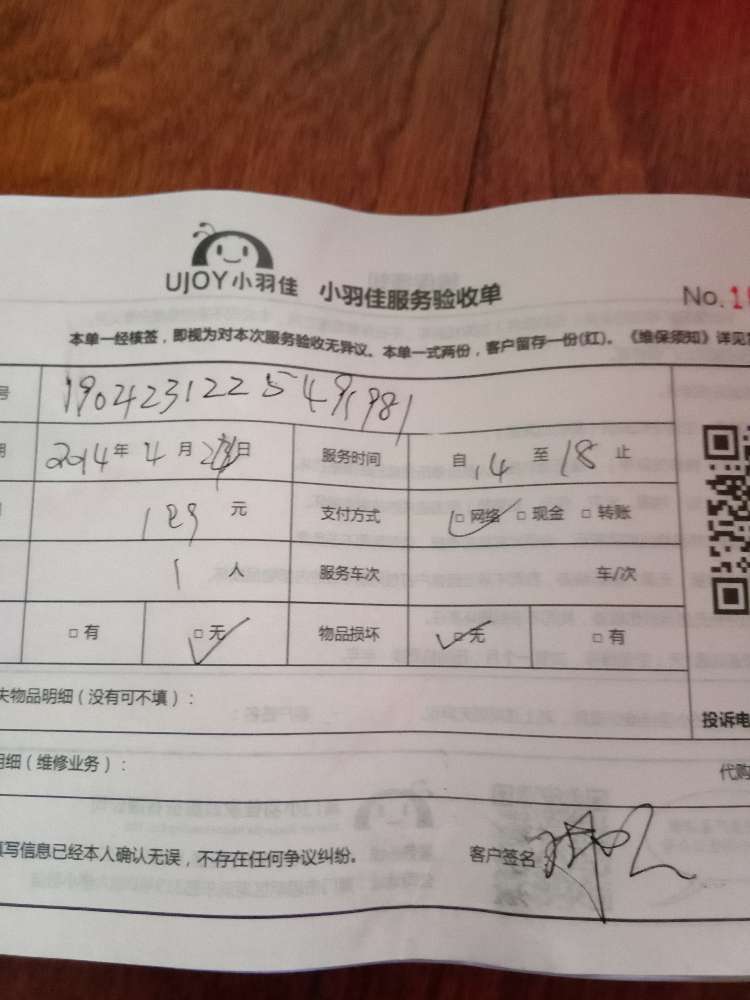 UJOY小羽佳 小羽佳服务验收单 No.1
本单一经核签，即视为对本次服务验收无异议。本单一式两份，客户留存一份(红)。《维保须知》详见
号 1904231225491981
期 2014年4月 日 服务时间 自14至18止
189元 支付方式 □网络 □现金 □转账
1人 服务车次 车/次
□有 □无 物品损坏 □无 □有
失物品明细（没有可不填）： 投诉电
明细（维修业务）： 代购
填写信息已经本人确认无误，不存在任何争议纠纷。 客户签名